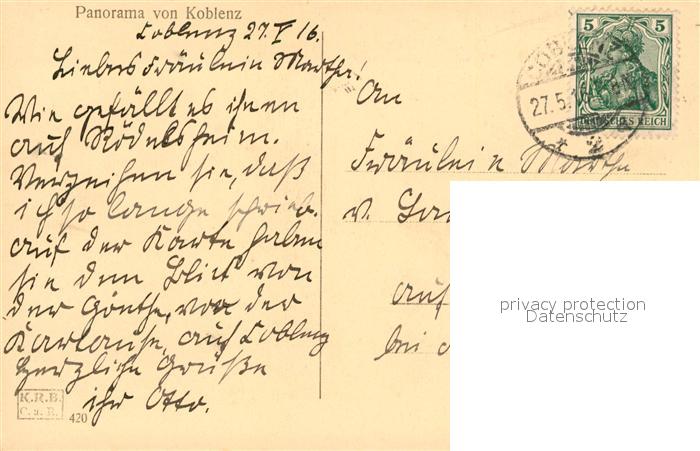 Panorama von Koblenz
Coblenz 27. V 16.
Liebes Fräulein Martha!
Wie gefällt es ihnen
auf Rödelsheim.
Verzeihen sie, daß
ich so lange schrieb.
auf der Karte haben
sie den Blick von
der Goethe, von der
Kartause, auf Coblenz
Herzliche Grüße
ihr Otto.
K.R.B.
C. a. R.
420
5 5
DEUTSCHES REICH
27.5.16
An
Fräulein Martha
v.
auf
bei
privacy protection
Datenschutz